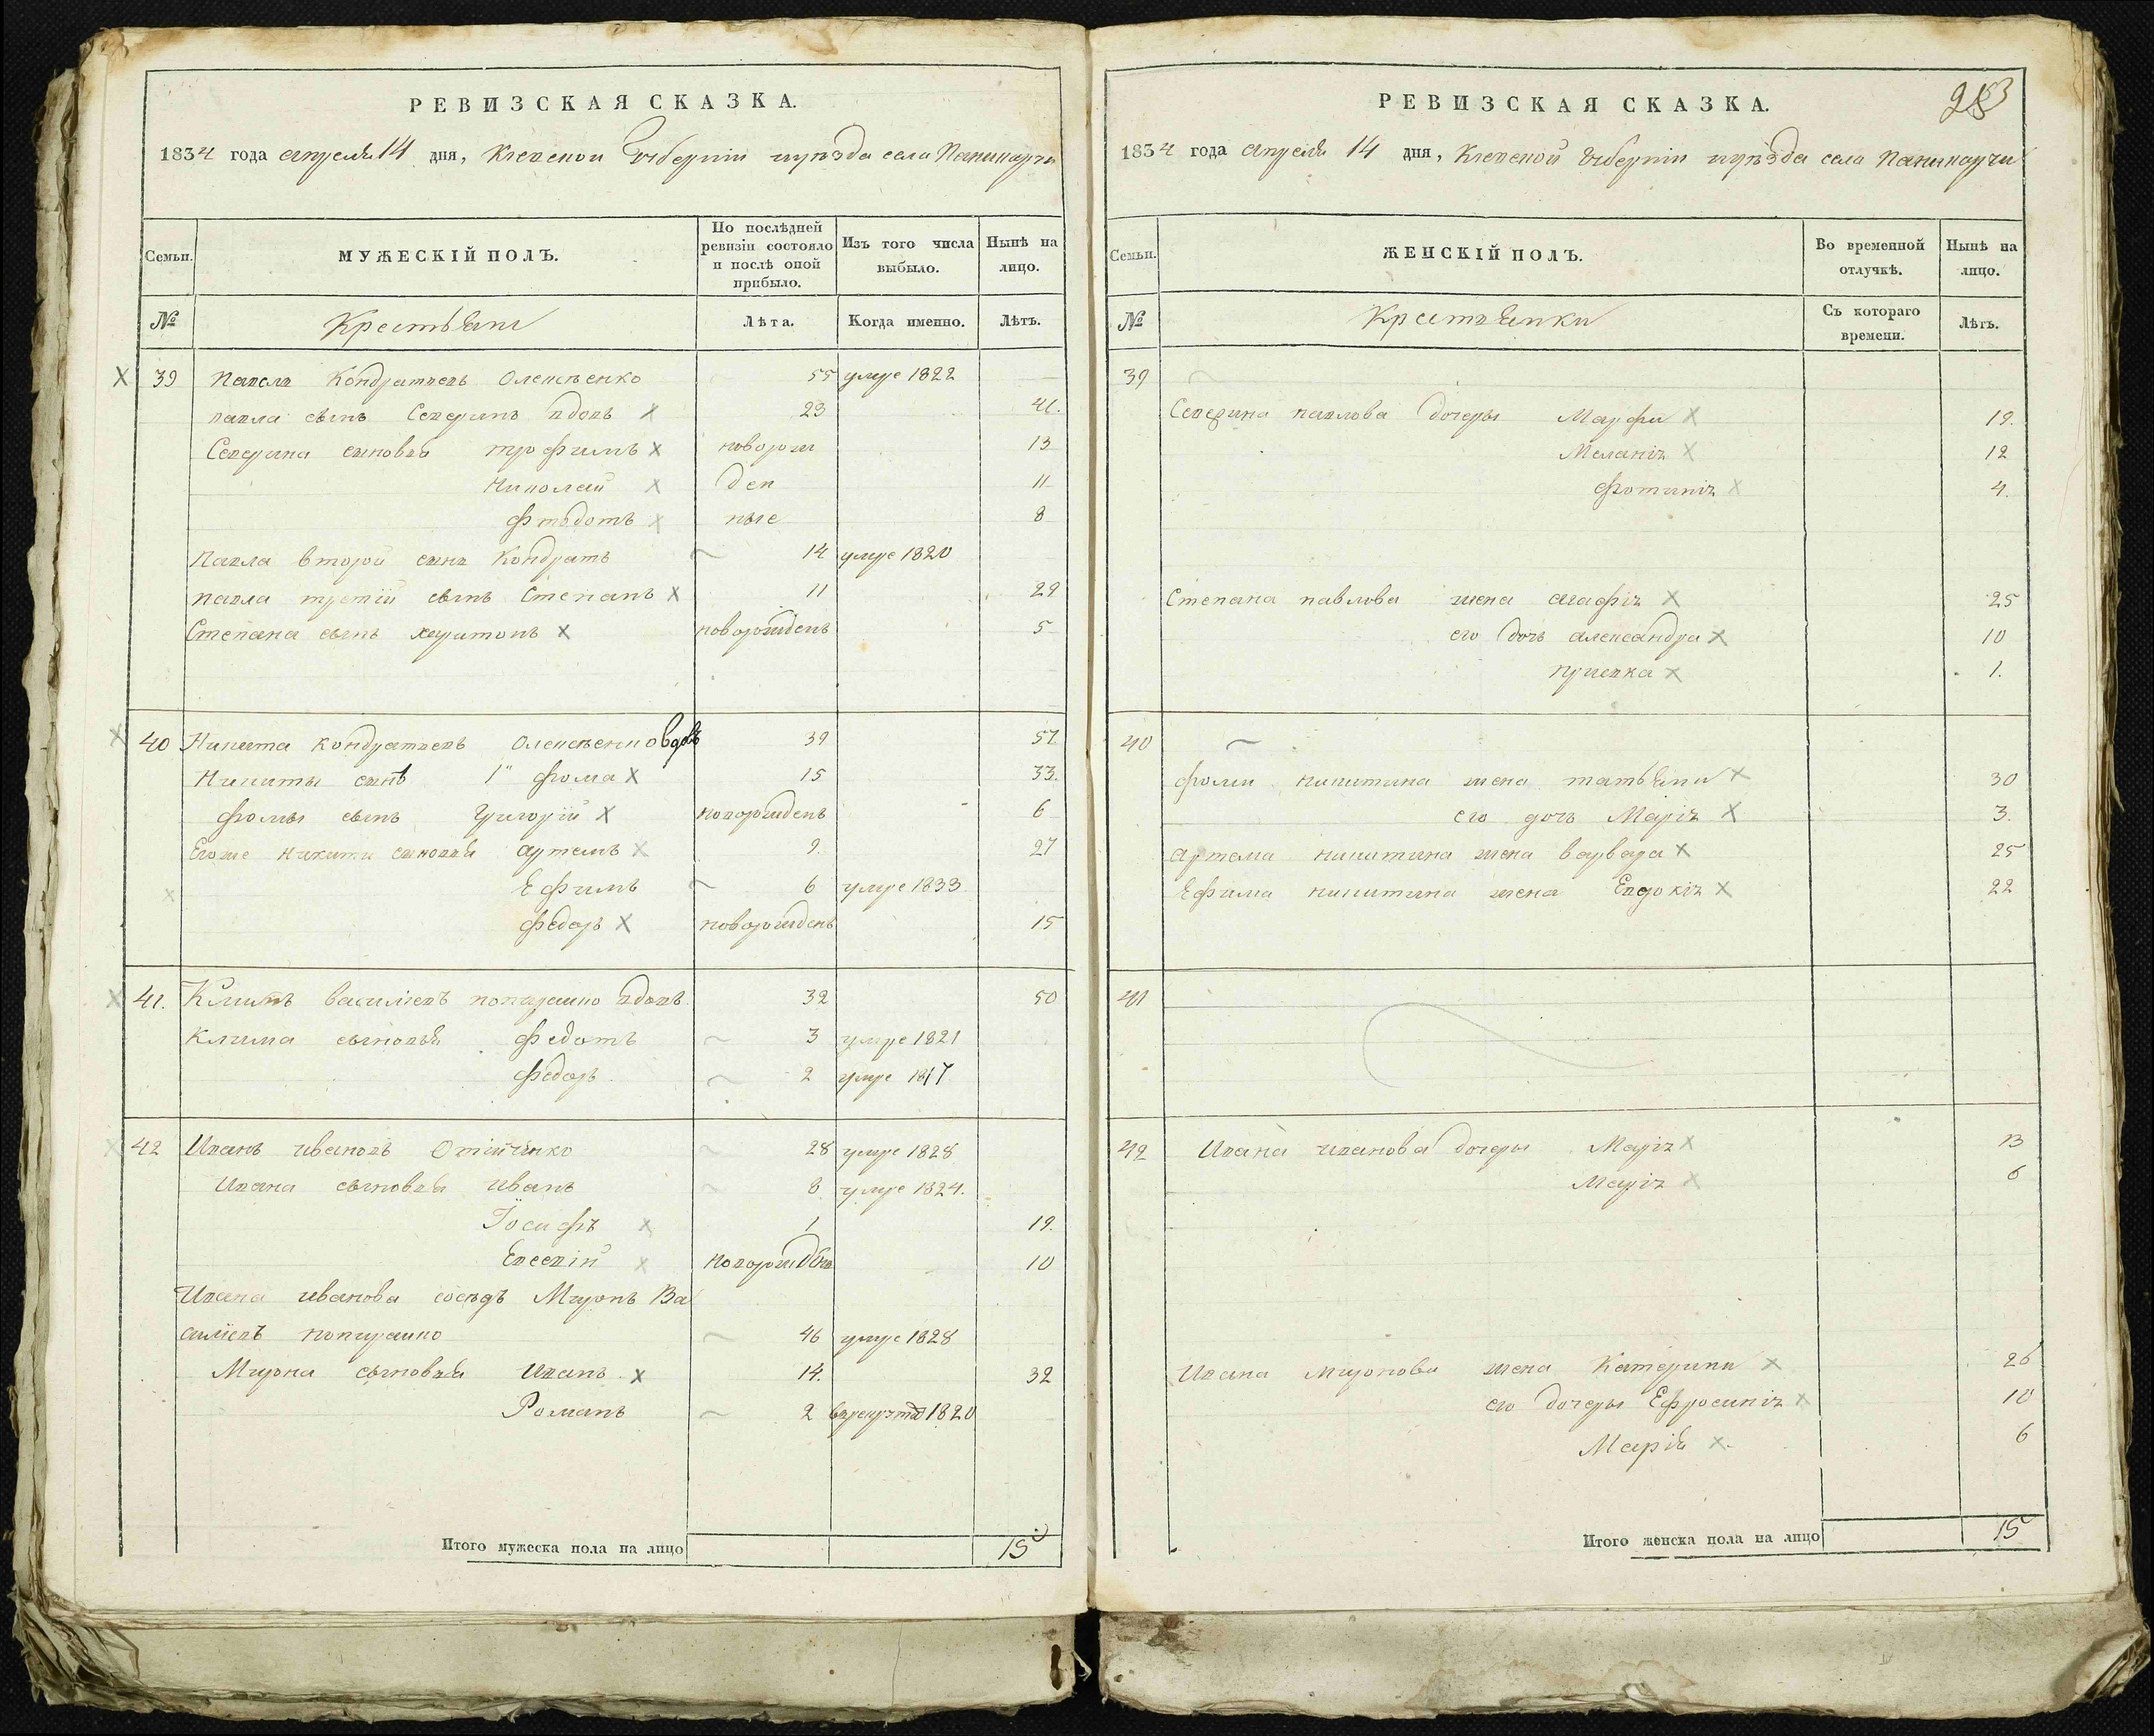 РЕВИЗСКАЯ СКАЗКА.
1834 года апреля 14 дня, Киевской Губернии и уезда села Паникарчи
Семьи.
МУЖЕСКІЙ ПОЛЪ.
По послѣдней ревизіи состояло и послѣ оной прибыло.
Изъ того числа выбыло.
Нынѣ на лицо.
№
Крестьяни
Лѣта.
Когда именно.
Лѣтъ.
39 Павелъ Кондратьевъ Олексѣенко 55 умре 1822
павла сынъ Северинъ вдовъ х 23 41.
Северина сыновья трофимъ х новорож 13
Николай х ден 11
Ф тодотъ х ные 8
Павла второй сынъ Кондратъ 14 умре 1820
павла третій сынъ Степанъ х 11 29
Степана сынъ харитонъ х новорожденъ 5
40 Никита кондратьевъ Олексѣенко вдовъ 39 57
Никиты сынъ 1" фома х 15 33.
фомы сынъ Григорій х новорожденъ 6
Егоже Никити сыновья артемъ х 9 27
Ефимъ 6 умре 1833
федоръ х новорожденъ 15
41. Климъ василіевъ вдовъ 32 50
Клима сыновья федотъ 3 умре 1821
федоръ 2 умре 1817
42 Иванъ ивановъ 28 умре 1828
Ивана сыновья иванъ 8 умре 1824.
Іосифъ х 1 19.
Евсевій х новорожденъ 10
Ивана иванова сосѣдъ Миронъ Ва
силіевъ 46 умре 1828
Мирона сыновья Иванъ х 14. 32
Романъ 2 1820
Итого мужеска пола на лицо 15
РЕВИЗСКАЯ СКАЗКА.
1834 года апреля 14 дня, Киевской Губерніи и уѣзда села Паникарчи
Семьи.
ЖЕНСКІЙ ПОЛЪ.
Во временной отлучкѣ.
Нынѣ на лицо.
№
Крестьянки
Съ котораго времени.
Лѣтъ.
39
Северина павлова дочеры Марфи х 19.
Меланія х 12
Фотинія х 4.
Степана павлова жена агафія х 25
его дочь александра х 10
приська х 1.
40
фоми никитина жена татьяни х 30
его дочь Марія х 3.
артема никитина жена варвара х 25
Ефима никитина жена Евдокія х 22
41
42 Ивана иванова дочеры Марія х 13
Марія х 6
Ивана миронови жена Катерини х 26
его дочеры Ефросинія х 10
Марія х 6
Итого женска пола на лицо 15